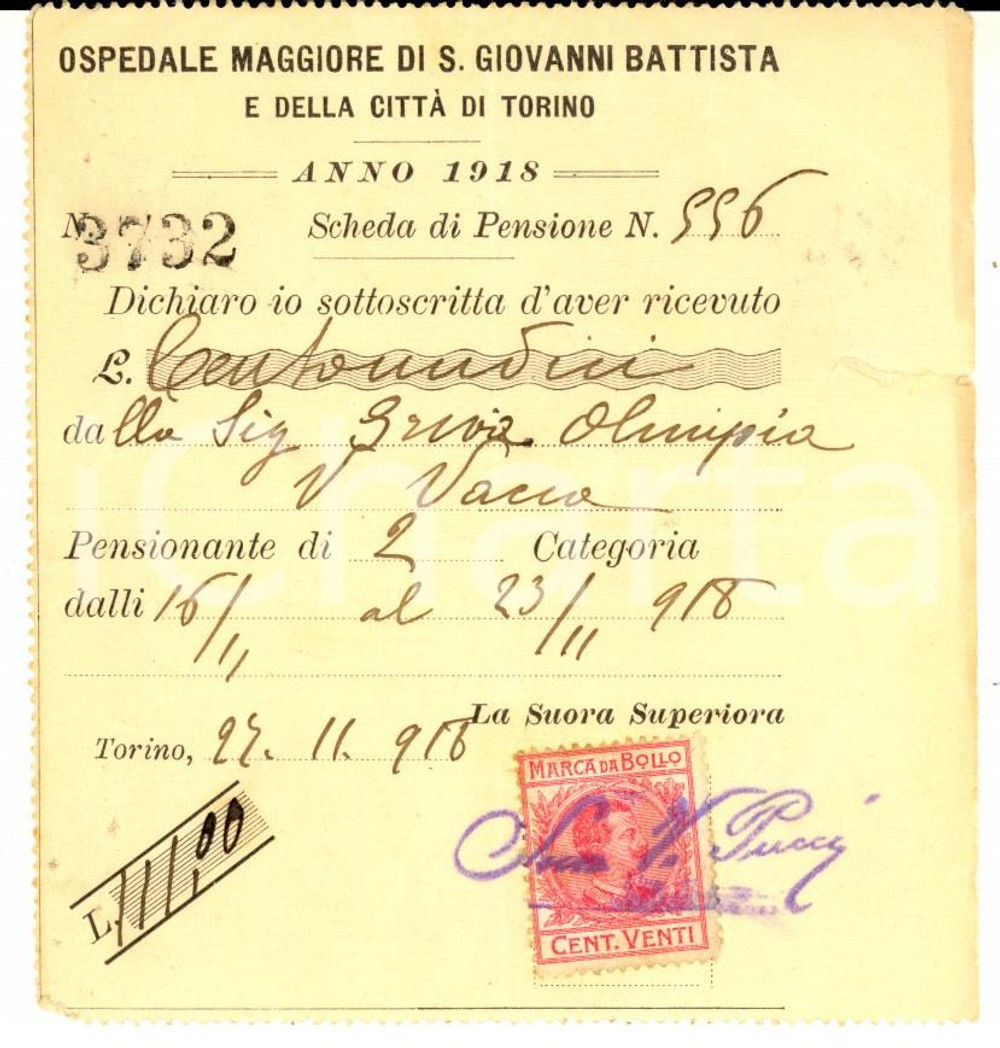 OSPEDALE MAGGIORE DI S. GIOVANNI BATTISTA
E DELLA CITTÀ DI TORINO
ANNO 1918
N. 3732 Scheda di Pensione N. 556
Dichiaro io sottoscritta d'aver ricevuto
L. Centoundici
dalla Sig Olimpia
V Vacca
Pensionante di 2 Categoria
dalli 16/11 al 23/11 918
La Suora Superiora
Torino, 27. 11. 918
MARCA DA BOLLO
Suor V. Pucci
L. 111,00
CENT. VENTI
iCharta